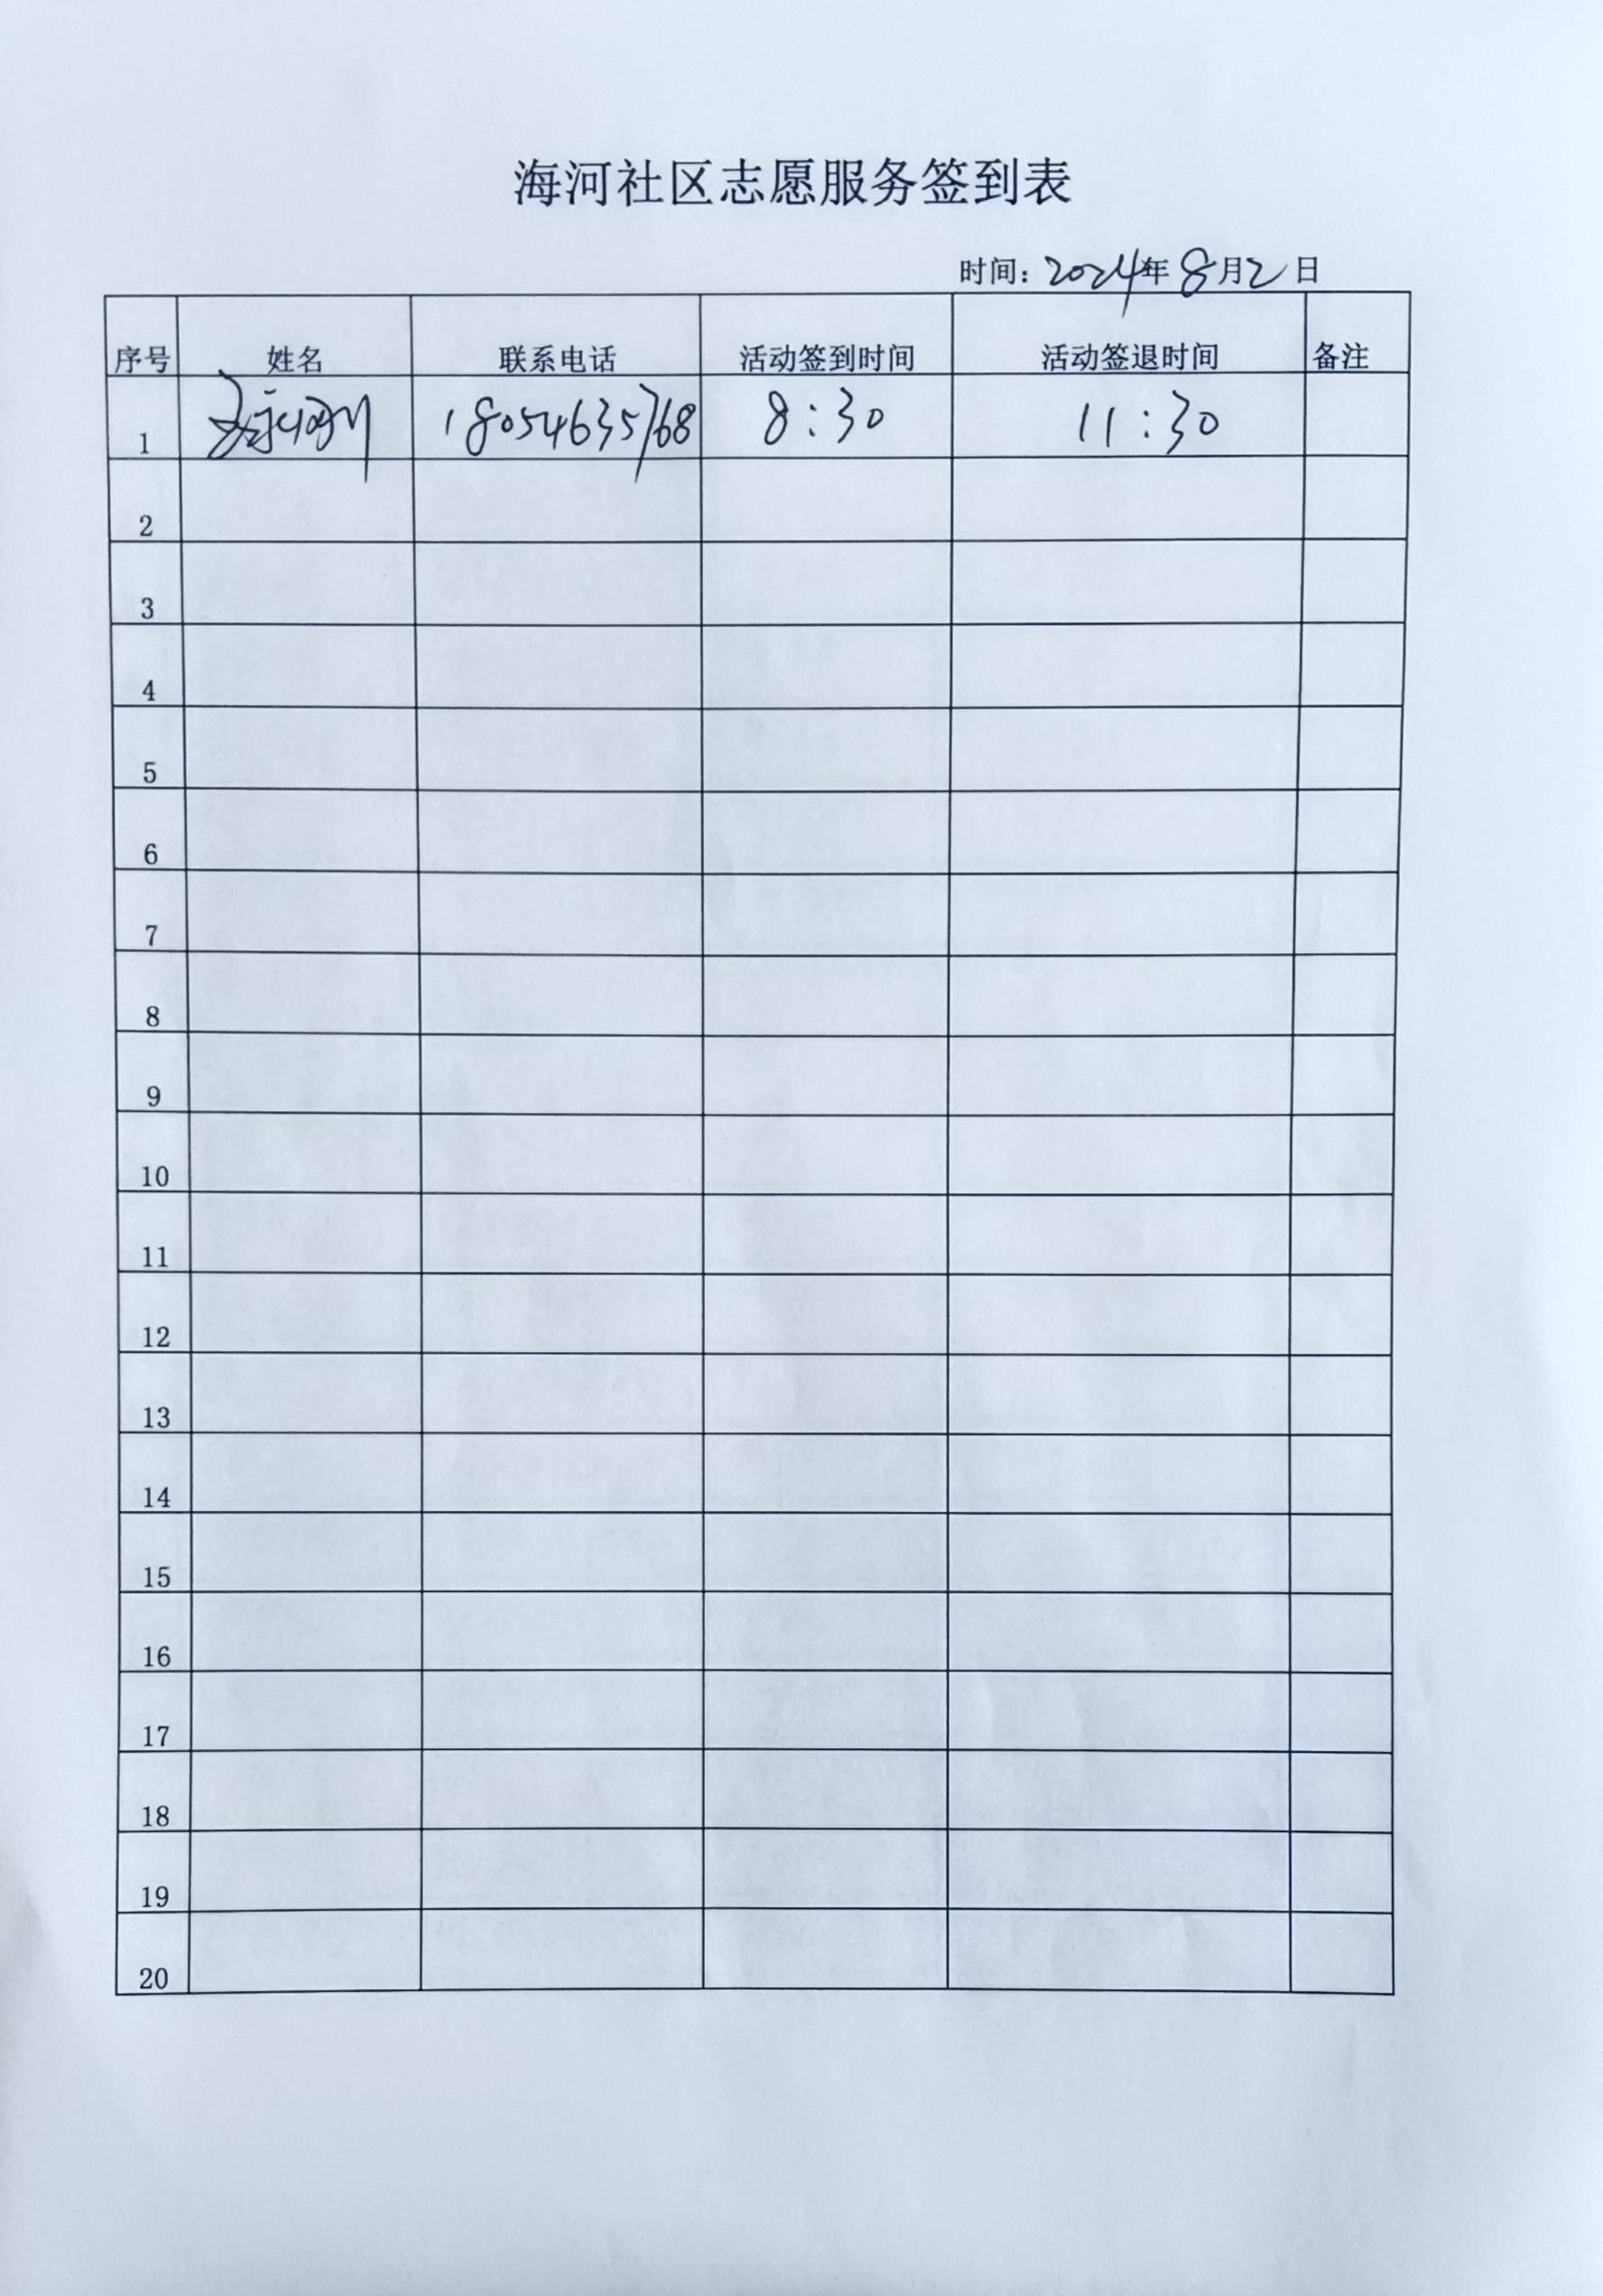 海河社区志愿服务签到表
时间：2024年8月2日
序号 姓名 联系电话 活动签到时间 活动签退时间 备注
1 18054635768 8:30 11:30
2
3
4
5
6
7
8
9
10
11
12
13
14
15
16
17
18
19
20